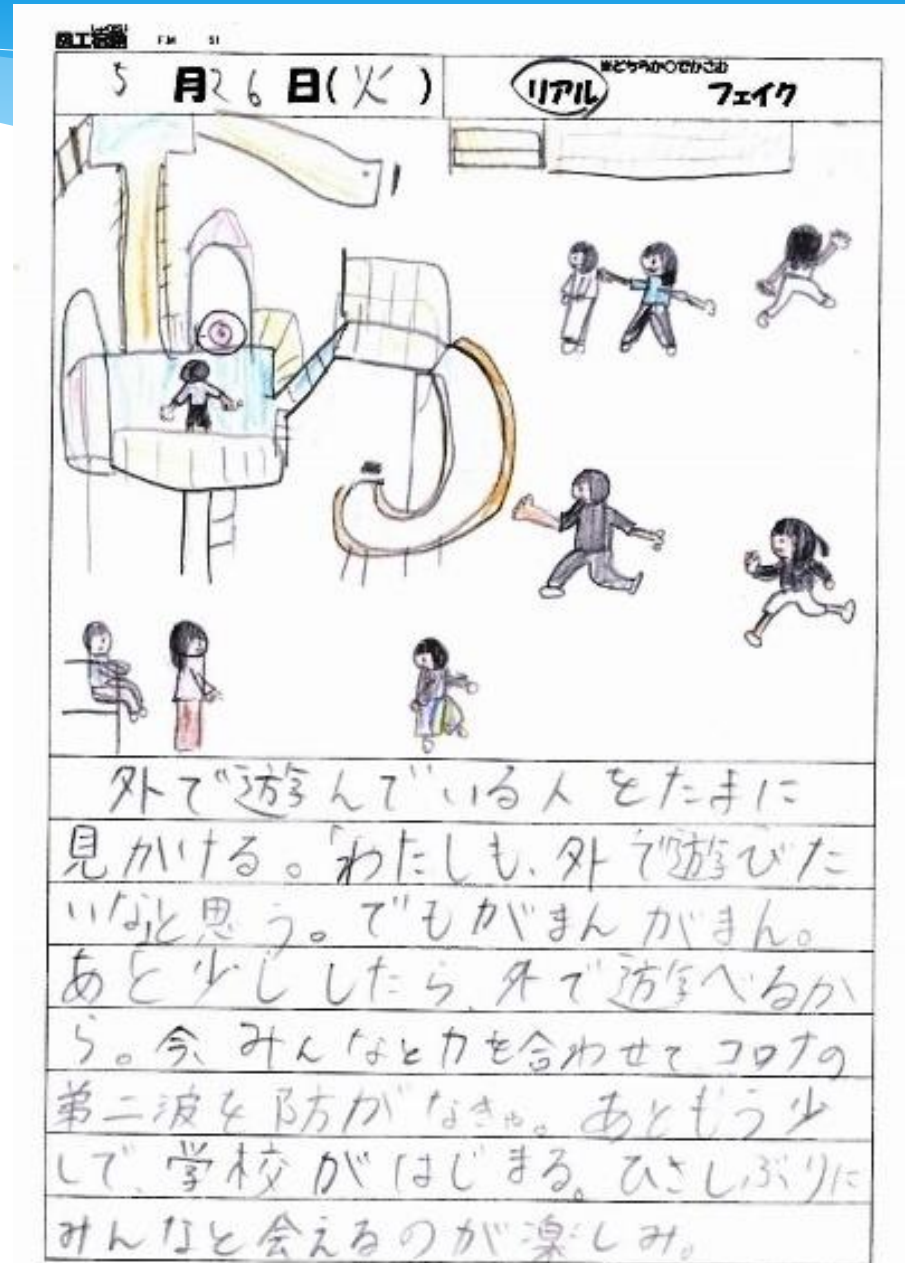 図工宿題
5月26日(火)
※どちらか○でかこむ
リアル フェイク
外で遊んでいる人をたまに
見かける。「わたしも、外で遊びた
いな」と思う。でもがまんがまん。
あと少ししたら、外で遊べるか
ら。今、みんなと力を合わせてコロナの
第二波を防がなきゃ。あともう少
しで、学校がはじまる。ひさしぶりに
みんなと会えるのが楽しみ。